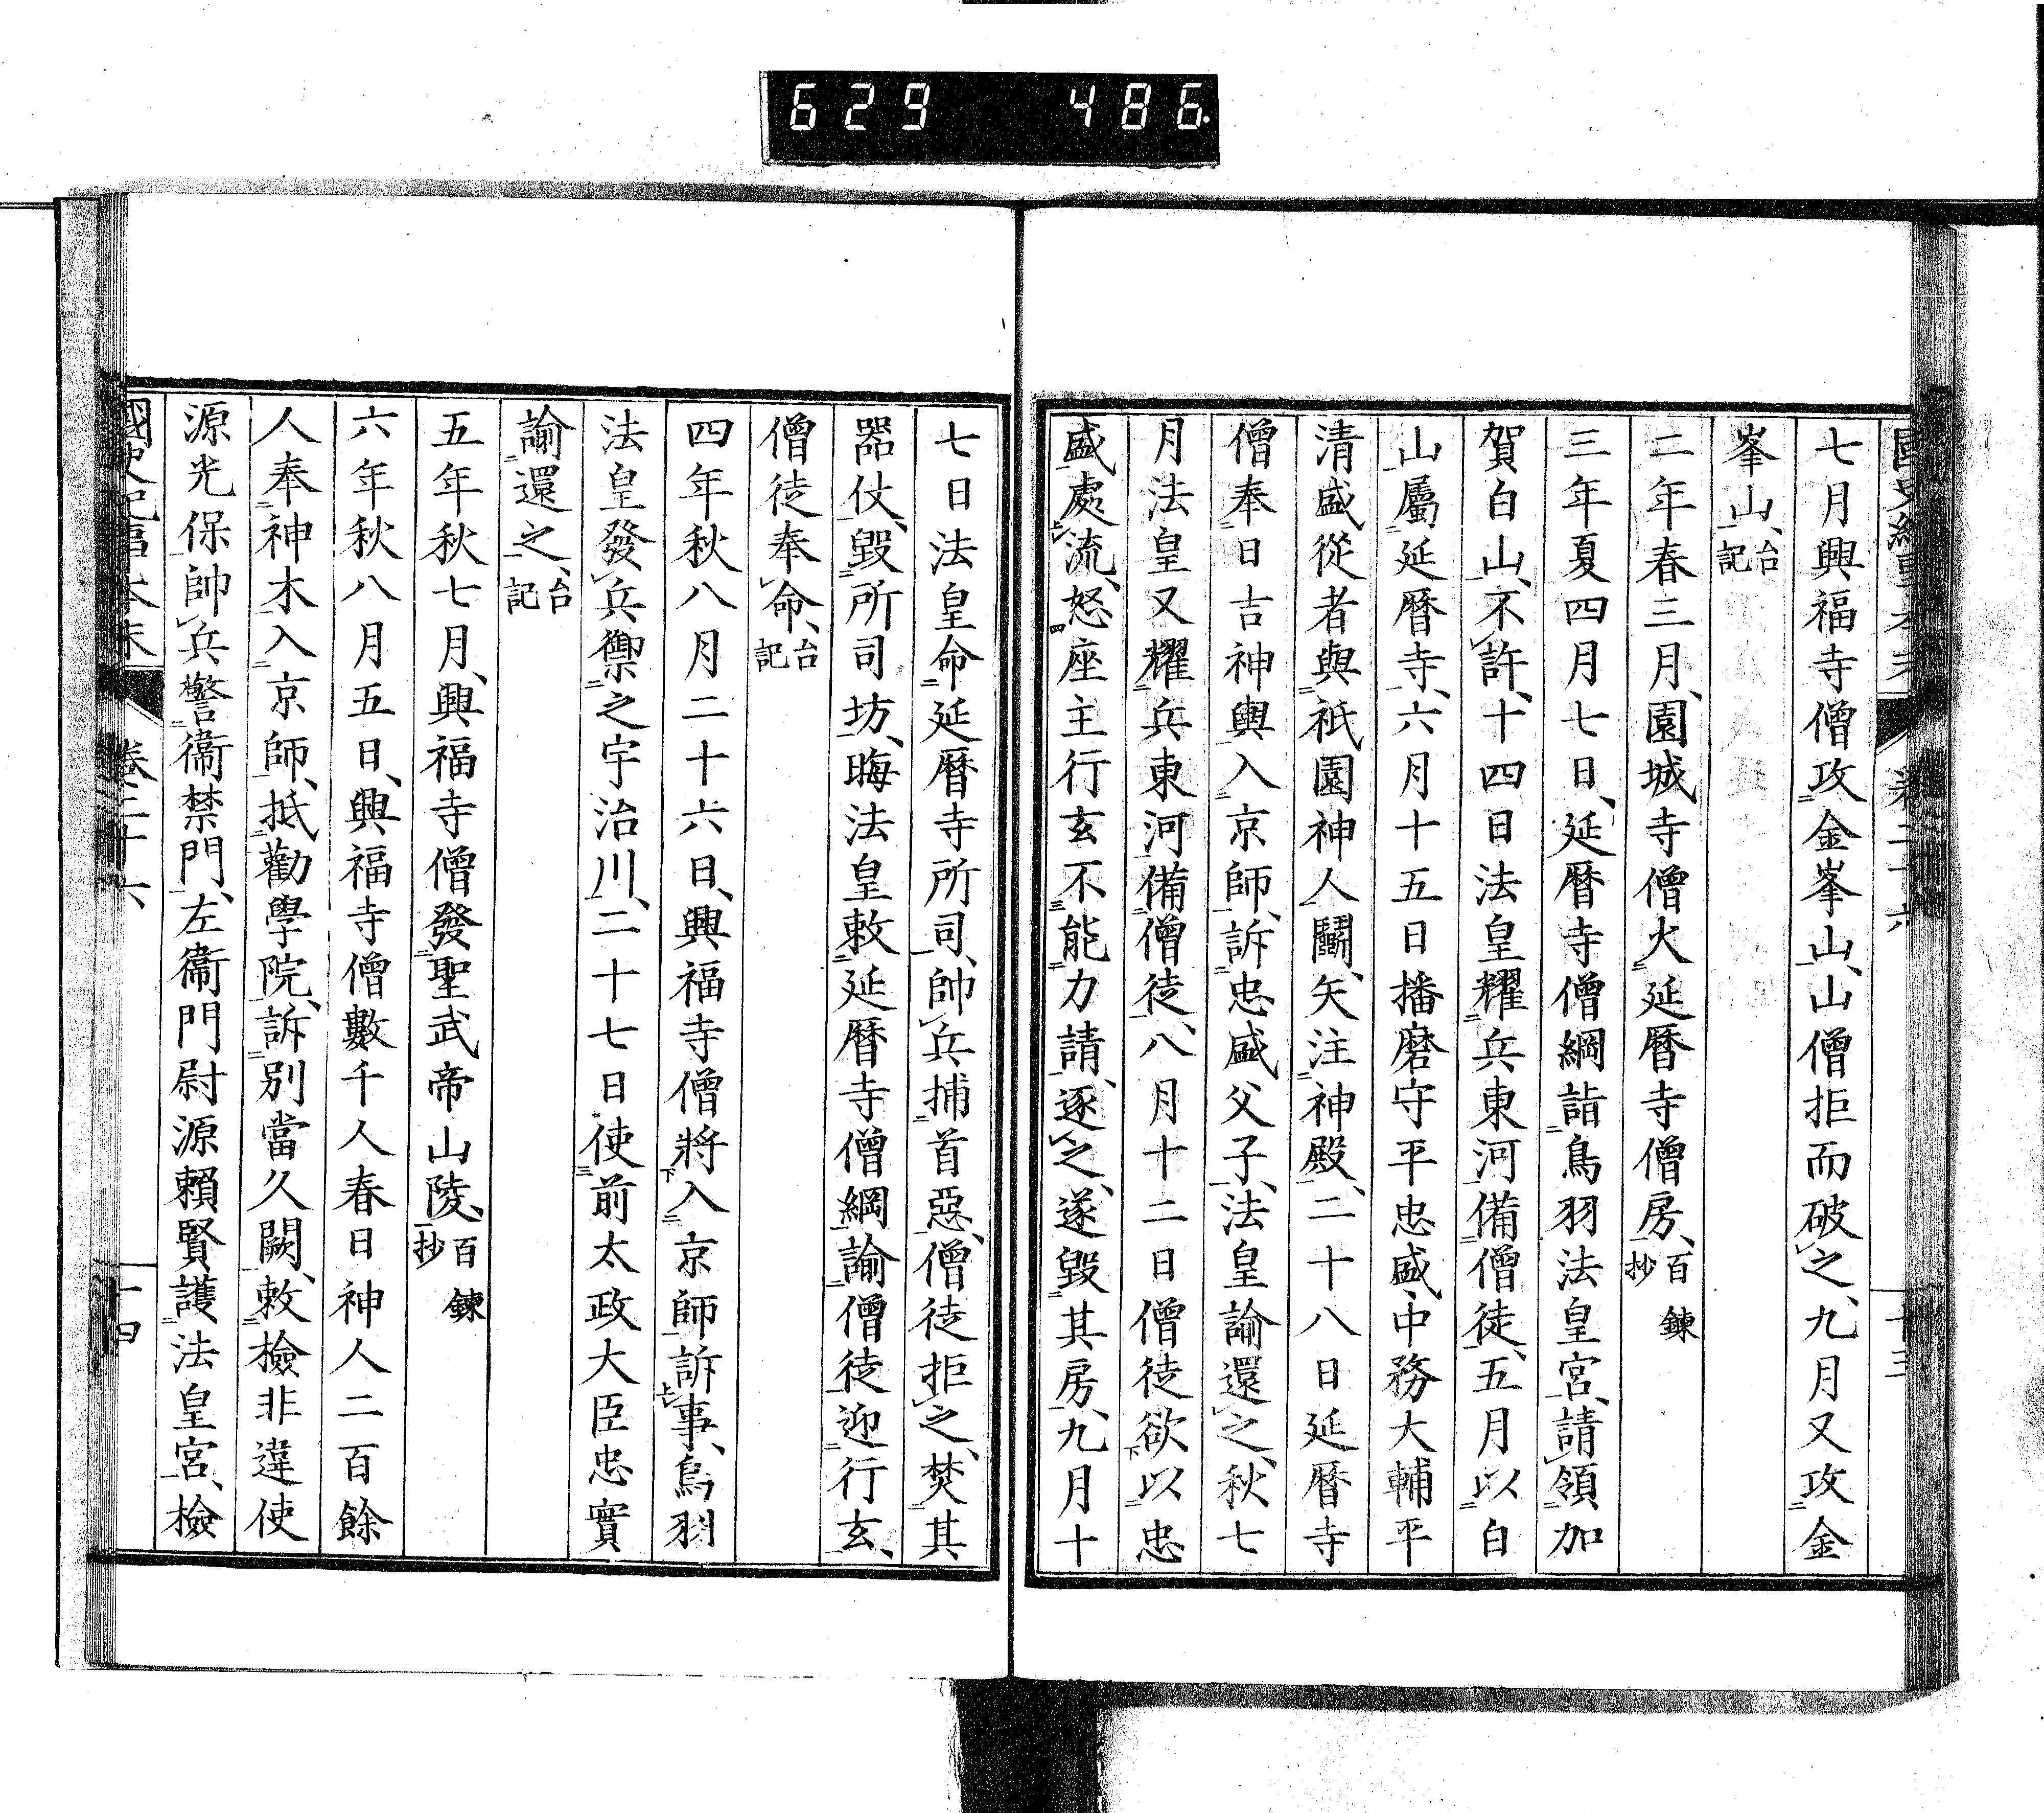 629 486.
國史紀事本末 卷二十六 十三
七月興福寺僧攻金峯山、山僧拒而破之、九月又攻金
峯山、台記
二年春三月、園城寺僧火延曆寺僧房、百鍊抄
三年夏四月七日、延曆寺僧綱詣鳥羽法皇宮、請領加
賀白山、不許、十四日法皇耀兵東河備僧徒、五月以白
山屬延曆寺、六月十五日播磨守平忠盛、中務大輔平
清盛從者與祇園神人鬪、矢注神殿、二十八日延曆寺
僧奉日吉神輿入京師、訴忠盛父子、法皇諭還之、秋七
月法皇又耀兵東河備僧徒、八月十二日僧徒欲以忠
盛處流、怒座主行玄不能力請、逐之、遂毀其房、九月十
七日法皇命延曆寺所司、帥兵捕首惡、僧徒拒之、焚其
器仗、毀所司坊、晦法皇敕延曆寺僧綱諭僧徒迎行玄、
僧徒奉命、台記
四年秋八月二十六日、興福寺僧將入京師訴事、鳥羽
法皇發兵禦之宇治川、二十七日使前太政大臣忠實
諭還之、台記
五年秋七月、興福寺僧發聖武帝山陵、百鍊抄
六年秋八月五日、興福寺僧數千人春日神人二百餘
人奉神木入京師、抵勸學院、訴別當久闕、敕檢非違使
源光保帥兵警衞禁門、左衞門尉源賴賢護法皇宮、檢
國史紀事本末 卷二十六 十四